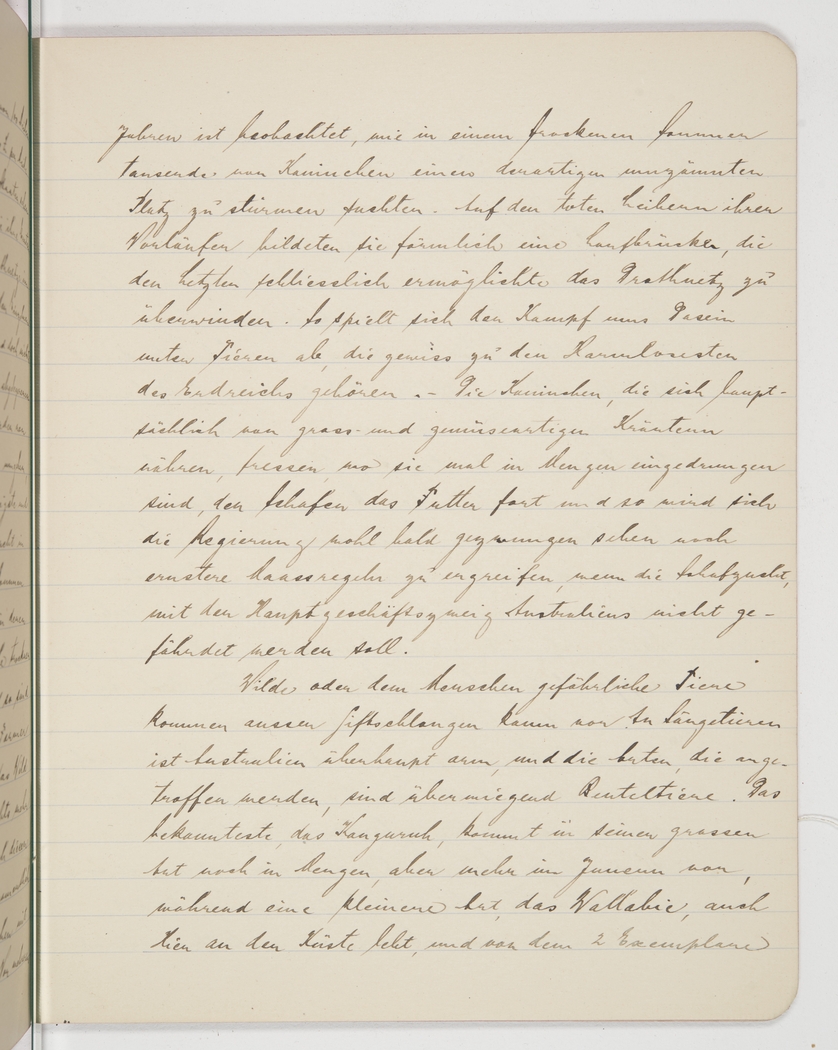 Jahren ist beobachtet, wie in einem trockenen Sommer
tausende von Kaninchen einen derartigen umzäunten
Platz zu stürmen suchten. Auf den toten Leibern ihrer
Vorläufer bildeten sie förmlich eine Laufbrücke, die
den Letzten schliesslich ermöglichte das Drathnetz zu
überwinden. So spielt sich der Kampf ums Dasein
unter Tieren ab, die gewiss zu den Harmlosesten
des Erdreichs gehören. - Die Kaninchen, die sich haupt-
sächlich von grass- und gemüseartigen Kräutern
nähren, fressen, wo sie mal in Mengen eingedrungen
sind, den Schafen das Futter fort und so wird sich
die Regierung wohl bald gezwungen sehen noch
ernstere Maassregeln zu ergreifen, wenn die Schafzucht,
mit der Hauptgeschäftszweig Australiens nicht ge-
fährdet werden soll.
Wilde oder dem Menschen gefährliche Tiere
kommen ausser Giftschlangen kaum vor. An Säugetieren
ist Australien überhaupt arm, und die Arten, die ange-
troffen werden, sind überwiegend Beuteltiere. Das
bekannteste, das Känguruh, kommt in seiner grossen
Art noch in Mengen, aber mehr im Innern vor,
während eine kleinere Art, das Wallabie, auch
hier an der Küste lebt, und von dem 2 Exemplare